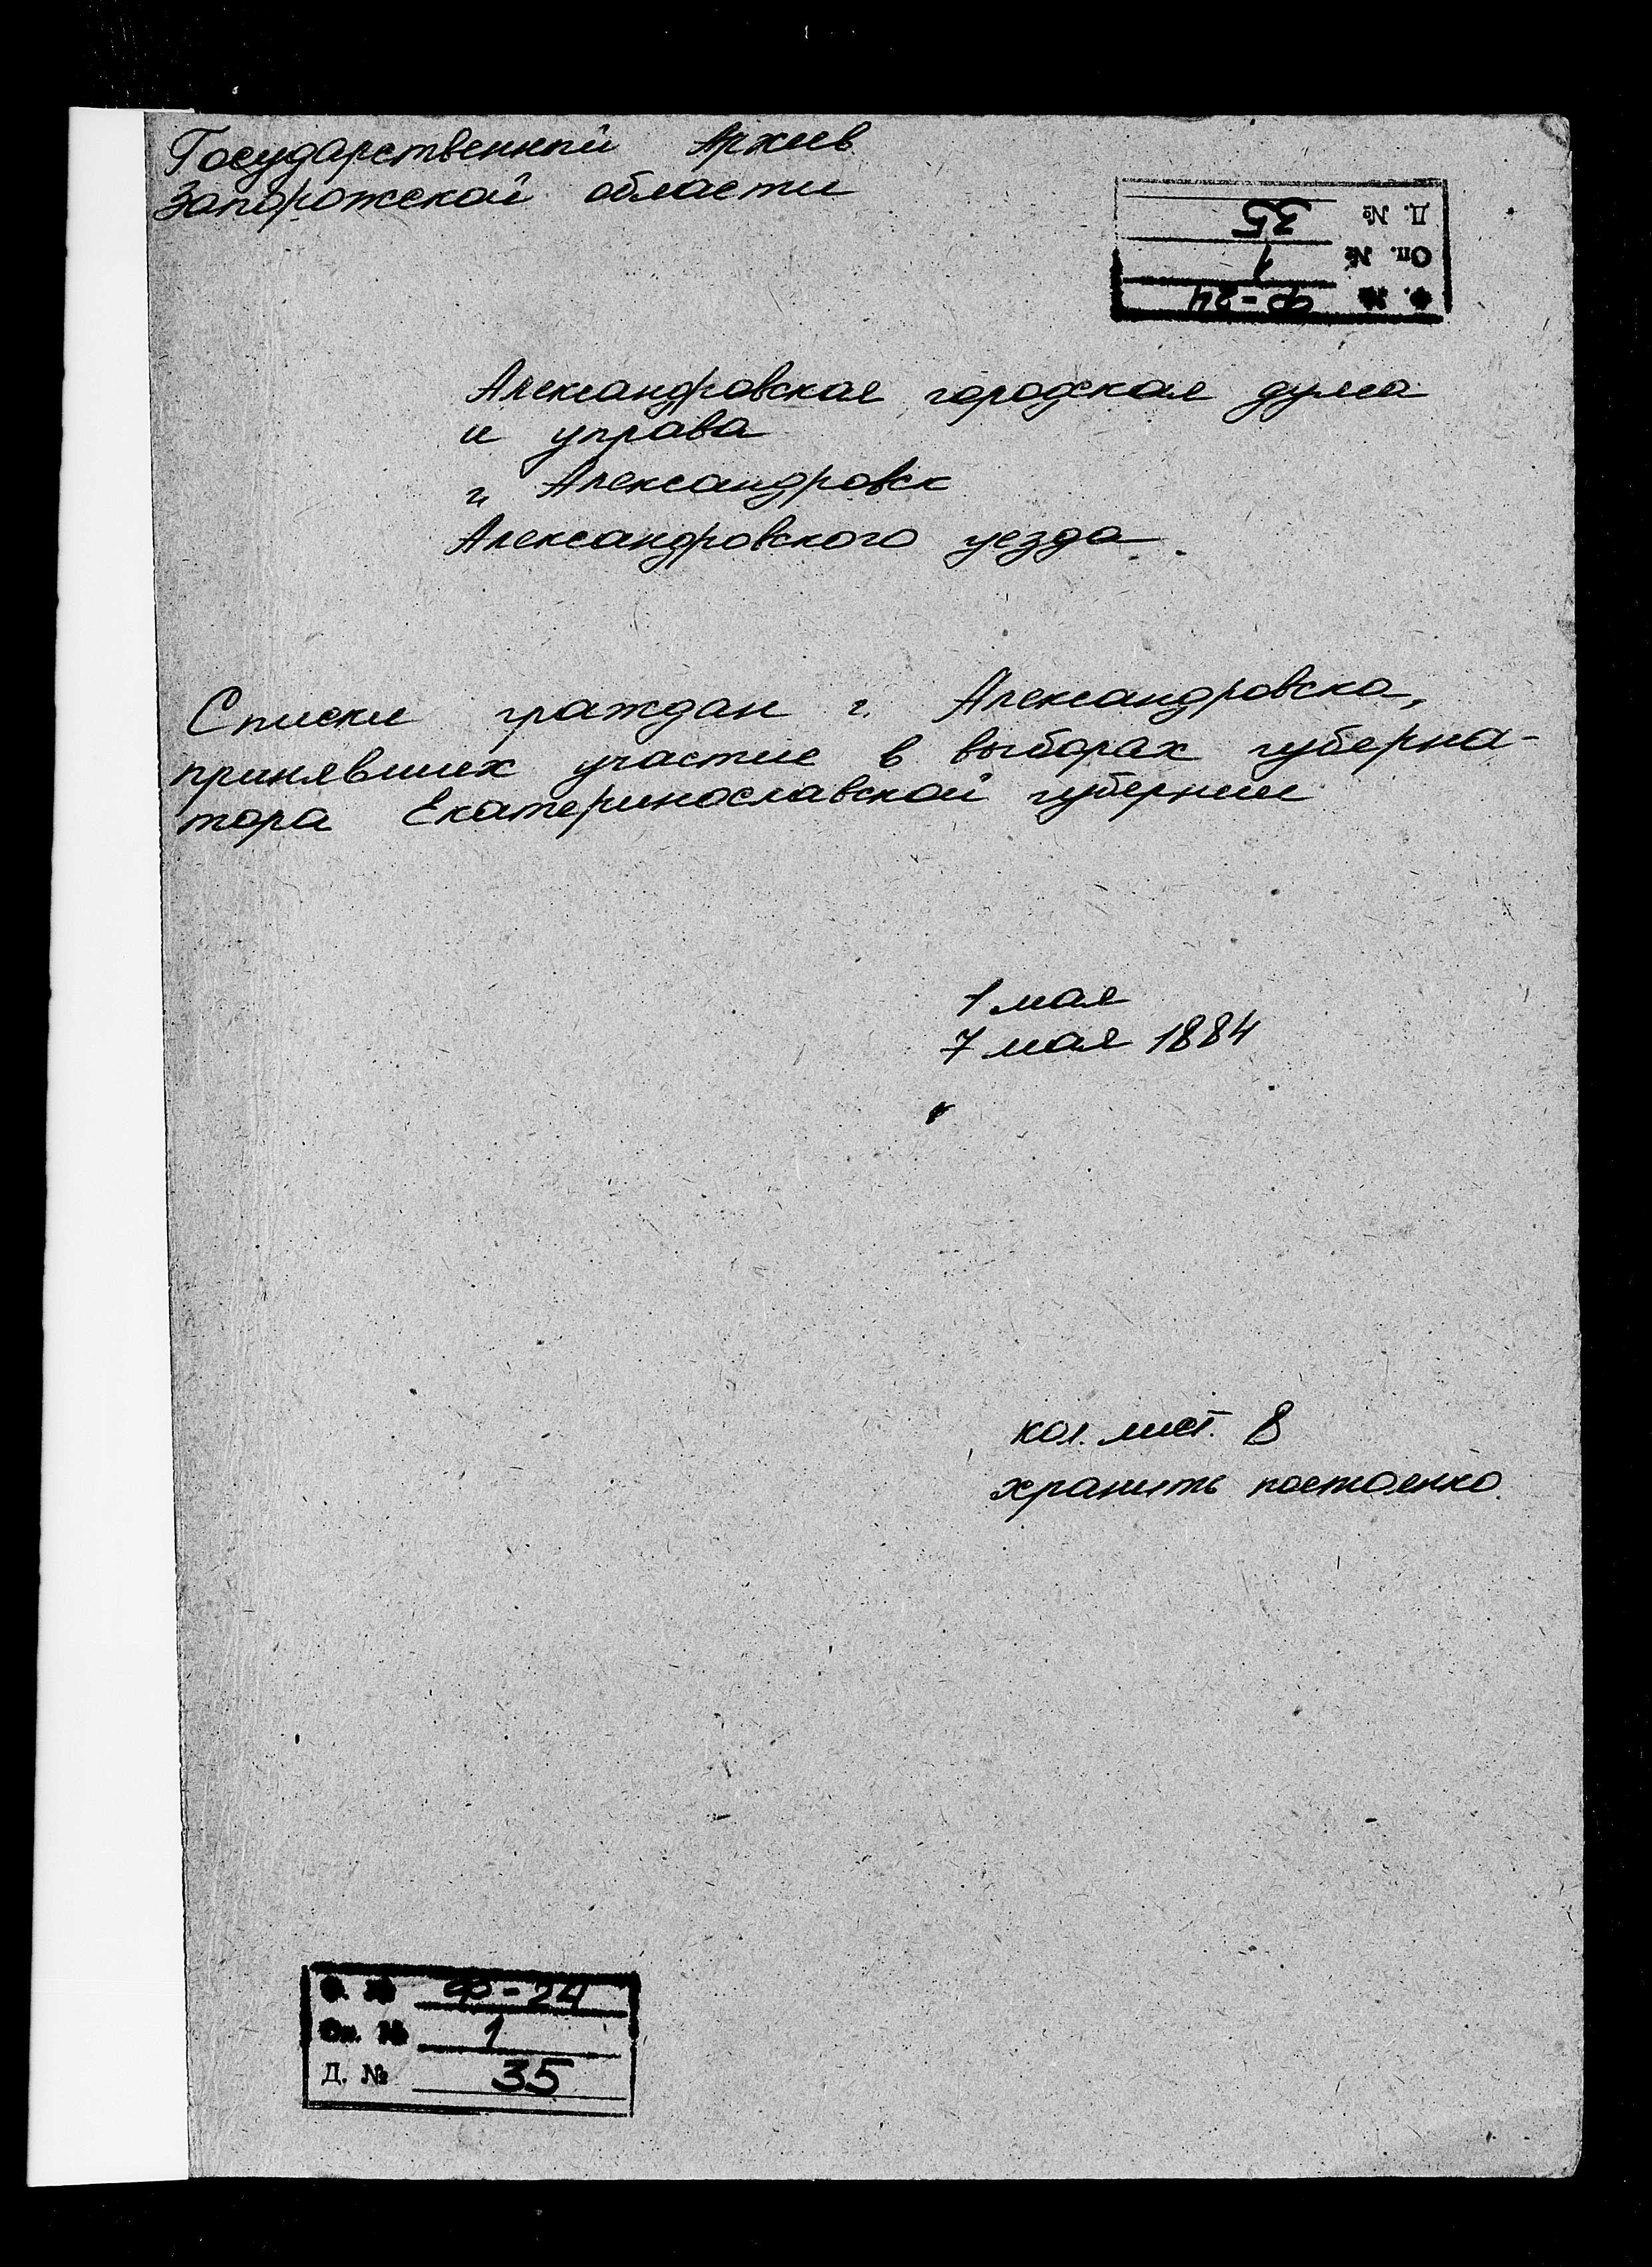 Государственный Архив
Запорожской области
Д. № 35
Оп. № 1
Ф. № Ф-24
Александровская городская дума
и управа
г. Александровск
Александровского уезда.
Списки граждан г. Александровска,
принявших участие в выборах губерна-
тора Екатеринославской губернии
1 мая
7 мая 1884
кол. лист. 8
хранить постоянно.
Ф. № Ф-24
Оп. № 1
Д. № 35